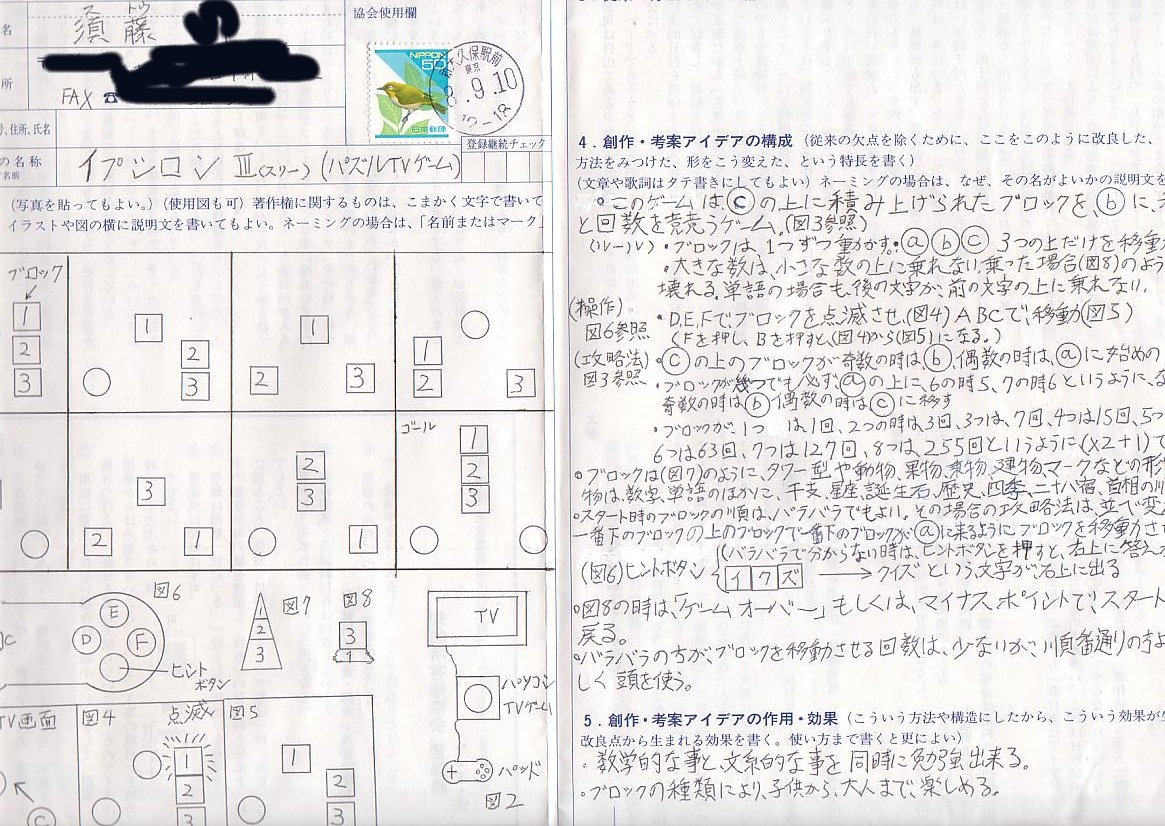 名
須藤
スドウ
所
FAX
協会使用欄
NIPPON
50
日本郵便
久保駅前
東京
8.9.10
12-18
号、住所、氏名
の名称
名前
イプシロンⅢ(スリー)(パズルTVゲーム)
登録継続チェック
(写真を貼ってもよい。)(使用図も可)著作権に関するものは、こまかく文字で書いて
イラストや図の横に説明文を書いてもよい。ネーミングの場合は、「名前またはマーク」
ブロック
1
2
3
1
2
3
1
2
3
1
2
3
ゴール
3
2
1
2
3
1
1
2
3
図6
E
D
F
ヒント
ボタン
図7
1
2
3
図8
3
1
TV
パソコン
TVゲーム
パッド
図2
TV画面
C
図4
点滅
1
2
3
図5
1
2
3
4.創作・考案アイデアの構成(従来の欠点を除くために、ここをこのように改良した、
方法をみつけた、形をこう変えた、という特長を書く)
(文章や歌詞はタテ書きにしてもよい)ネーミングの場合は、なぜ、その名がよいかの説明文を
。このゲームはⓒの上に積み上げられたブロックを、ⓑに、
と回数を競うゲーム。(図3参照)
(ルール)・ブロックは、1つずつ動かす。・ⓐⓑⓒ 3つの上だけを移動
・大きな数は、小さな数の上に乗れない乗った場合(図8)のよう
壊れる。単語の場合も、後の文字が、前の文字の上に乗れない。
(操作)
図6参照
・D.E.Fでブロックを点滅させ、(図4)ABCで、移動(図5)
(Fを押し、Bを押すと、(図4)から(図5)になる。)
(攻略法)
図3参照
・ⓒの上のブロックが奇数の時は、ⓑ、偶数の時は、ⓐに始めの
・ブロックが幾つでも必ず、ⓐの上に、6の時5、7の時6というように、
奇数の時はⓑ偶数の時はⓒに移す
・ブロックが、1つ は1回、2つの時は3回、3つは、7回、4つは15回、5つ
6つは63回、7つは127回、8つは、255回というように(×2+1)で
。ブロックは(図7)のように、タワー型や動物、果物、乗物、建物、マークなどの形
物は、数字、単語のほかに、干支、星座、誕生石、歴史、四季、二十八宿、首相の順
。スタート時のブロックの順は、バラバラでもよい。その場合の攻略法は、並で変
一番下のブロックの上のブロックで一番下のブロックが、ⓐに来るようにブロックを移動さ
(図6)ヒントボタン
(バラバラで分からない時は、ヒントボタンを押すと、右上に答え
イクズ → クイズという文字が右上に出る
。図8の時は、「ゲームオーバー」もしくは、マイナスポイントで、スタート
戻る。
。バラバラの方が、ブロックを移動させる回数は、少ないが、順番通りの方よ
しく頭を使う。
5.創作・考案アイデアの作用・効果(こういう方法や構造にしたから、こういう効果が
改良点から生まれる効果を書く。使い方まで書くと更によい)
・数学的な事と、文系的な事を同時に勉強出来る。
・ブロックの種類により、子供から、大人まで、楽しめる。